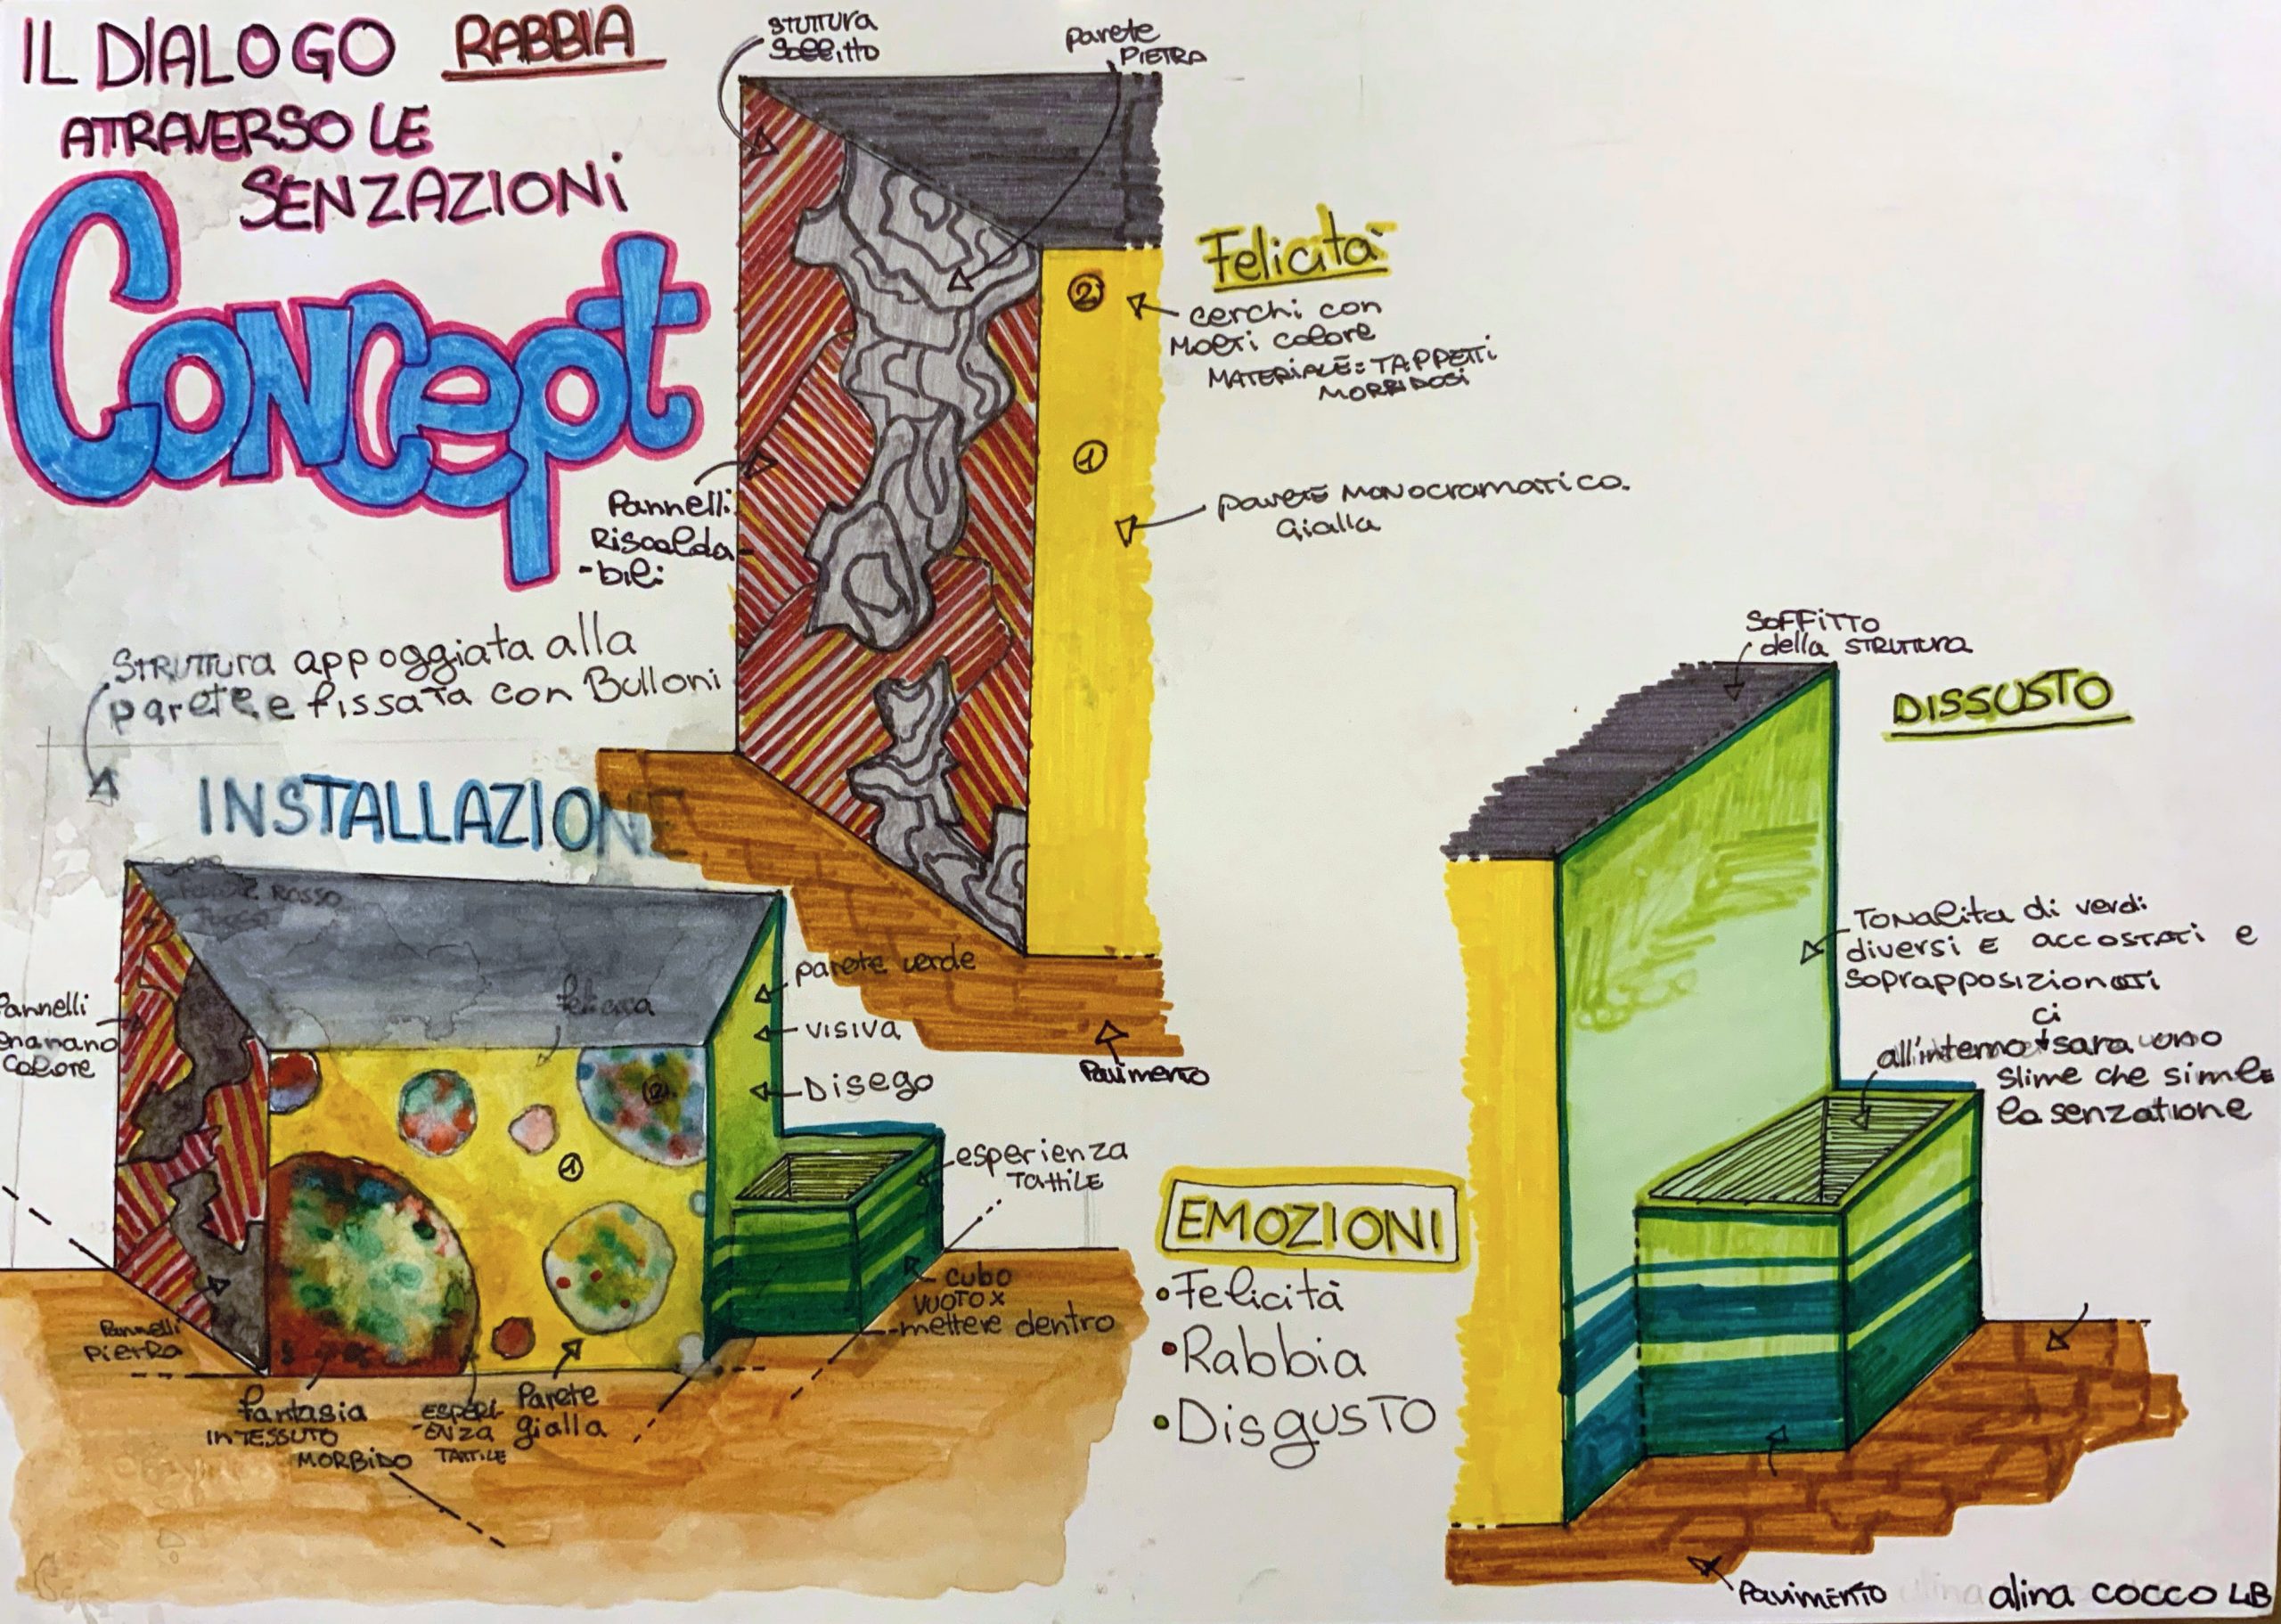 IL DIALOGO
ATRAVERSO LE
SENZAZIONI
CONCEPT
RABBIA
STUTTURA
Soffitto
parete
PIETRA
Pannelli
Riscalda
-bili
Felicità
cerchi con
Molti colore
MATERIALE: TAPPETTI
MORBIDOSI
2
1
parete Monocramatico.
Gialla
STRUTTURA appoggiata alla
parete e fissata con Bulloni
INSTALLAZIONE
ROSSO
Pannelli
Calore
parete verde
visiva
Disego
esperienza
TATTILE
cubo
VUOTO X
mettere dentro
Pannelli
PIETRA
fantasia
IN TESSUTO
MORBIDO
ESPERI-
-ENZA
TATTILE
Parete
gialla
(2)
1
Pavimento
EMOZIONI
• Felicità
• Rabbia
• DisgUSTO
SOFFITTO
della STRUTTURA
DISSUSTO
TONALITA di verdi
diversi E ACCOSTATI e
Soprapposizionati
ci
all'interno sara uno
slime che simile
la senzatione
PAVIMENTO
alina cocco 4B